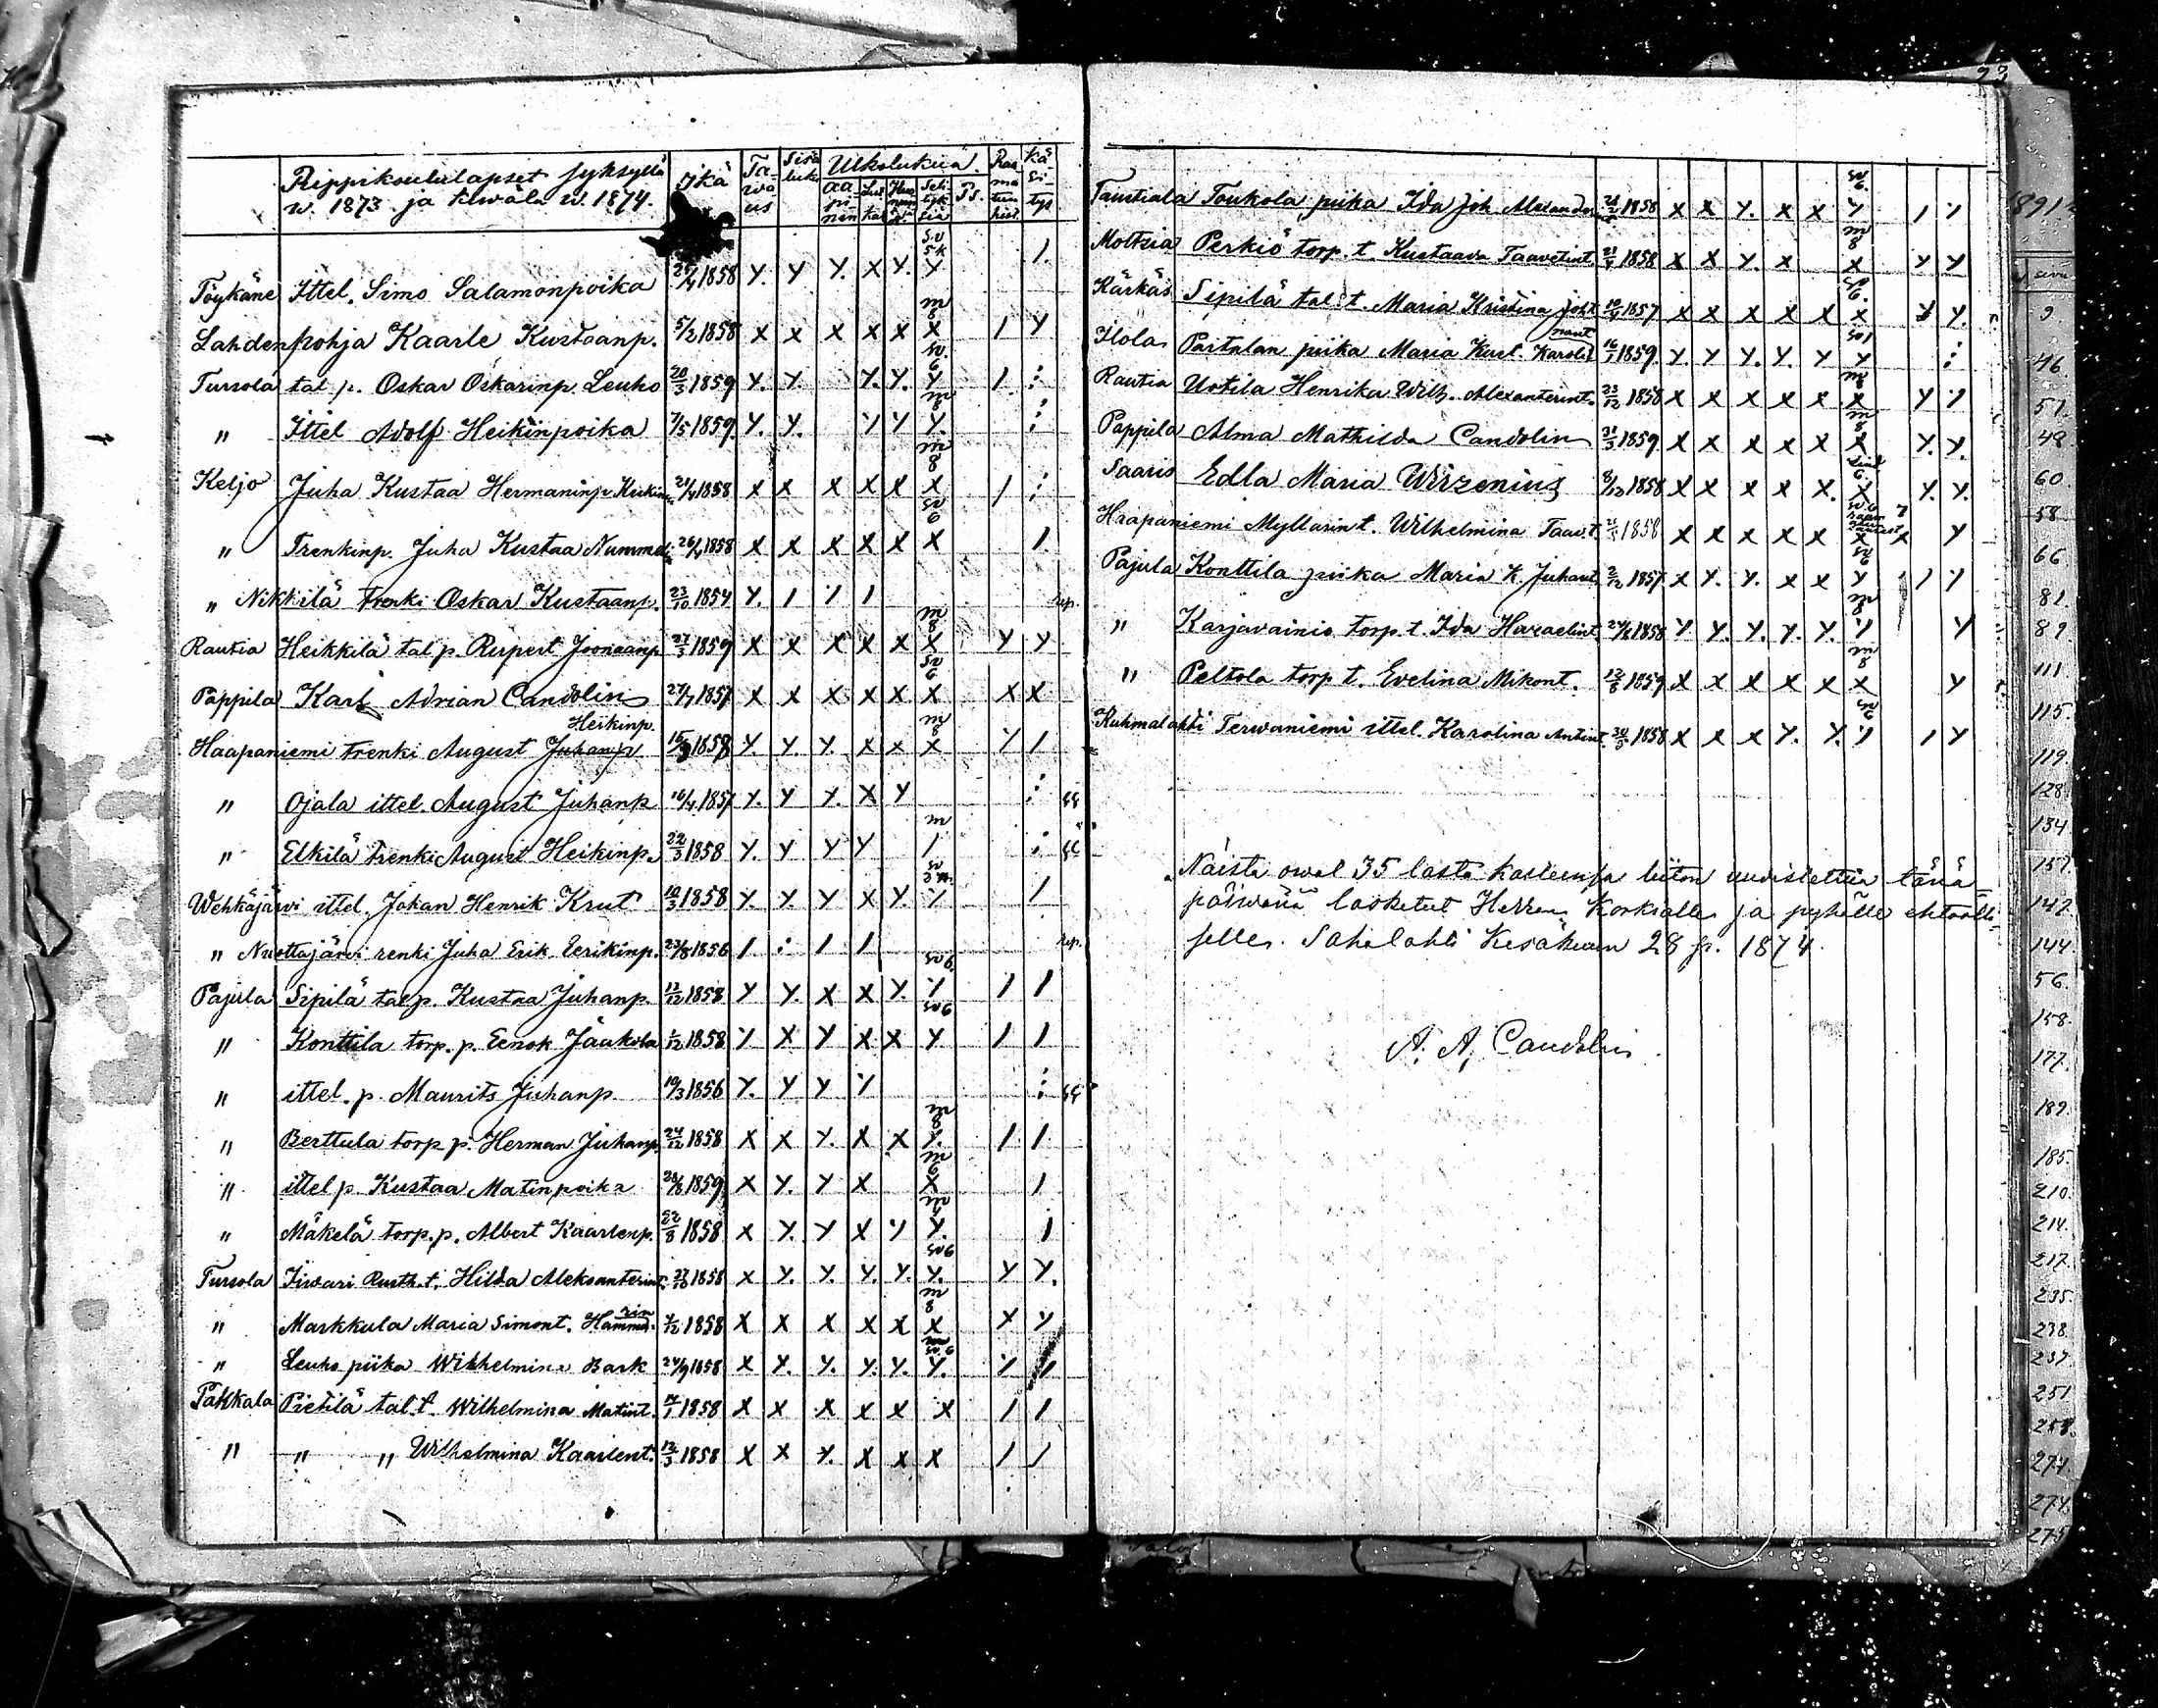 Rippikoululapset syksyllä
w. 1873 ja kewäla w. 1874.
Ikä
Ta-
wa
us
Sisä
luku
Ulkolukua.
aa
pi-
nen
Ps.
Kä-
si-
tys
Töykäne Ittel. Simo Salamonpoika 25/4 1858 Y. Y Y. X Y. Y 1.
Lahdenpohja Kaarle Kustaanp. 5/2 1858 X X X X X X 1 Y
Tursola tal. p. Oskar Oskarinp. Leuho 20/3 1859 Y. Y. Y. Y. Y 1
" Ittel Adolf Heikinpoika 7/5 1859. Y. Y. Y Y Y.
Keljo Juha Kustaa Hermaninp. 21/4 1858 X X X X X X 1
" Trenkinp. Juha Kustaa Nummel 26/4 1858 X X X X X X 1.
" Nikkilä trenki Oskar Kustaanp. 23/10 1854 Y. 1 1 1 rep.
Rautia Heikkilä tal p. Rupert Joonaanp 27/3 1859 X X X X X X Y Y
Pappila Karl Adrian Candolin 27/7 1857 X X X X X X X X
Heikinp.
Haapaniemi trenki August Juhanp 15/9 1858 Y. Y. Y. X X X Y 1
" Ojala ittel. August Juhanp 16/4 1857 Y. Y Y. X Y
" Elkilä trenki August Heikinp. 22/3 1858 Y. Y Y Y 1
Wehkäjärvi ittel. Johan Henrik Krut 10/3 1858 Y. Y. Y X Y. Y 1
" Nuottajärvi renki Juha Erik Eerikinp. 23/8 1856 1. : 1 1 rep.
Pajula Sipilä tal p. Kustaa Juhanp. 12/12 1858 Y Y. X X Y. Y 1 1
" Konttila torp. p. Eenok Jaakola 1/12 1858 Y X Y X X Y 1 1
" ittel. p. Maurits Juhanp 19/3 1856 Y. Y Y Y
" Berttula torp p. Herman Juhanp. 24/12 1858 X X Y. X X Y. 1 1
" ittel p. Kustaa Matinpoika 28/6 1859 X Y. Y X X 1
" Mäkelä torp. p. Albert Kaarlenp. 22/8 1858 X Y. Y X Y Y. 1
Tursola Iiwari Rusth. t. Hilda Aleksanterint. 27/10 1858 X Y. Y. Y. Y. Y. Y Y.
" Markkula Maria Simont. Hammarin 2/12 1858 X X X X X X X Y
" Leuho piika Wilhelmina Bark 24/9 1858 X Y. Y. Y. Y. Y. Y 1
Pakkala Pietilä tal. t. Wilhelmina Matint 17/1 1858 X X X X X X 1 1
" " " Wilhelmina Kaarlent. 12/3 1858 X X Y. X X X 1 1
Taustiala Toukola piika Ida Joh. 24/2 1858 X X Y. X X Y 1 Y
Moltsia Perkiö torp. t. Kustaava Taavetint. 21/4 1858 X X Y. X X Y Y
Kärkäs Sipilä tal. t. Maria Kristina Joh t 19/9 1857 X X X X X X Y Y.
Ilola Partalan piika Maria Kust. 16/1 1859. Y. Y Y. Y. Y Y
Rautia Uotila Henrika Wilh. Alexanterint. 23/12 1858 X X X X X X Y Y
Pappila Alma Mathilda Candolin 31/3 1859. X X X X X X Y. Y.
Saaris Edla Maria Wirzenius 8/12 1858 X X X X X. X Y. Y.
Haapaniemi Myllärin t. Wilhelmina Taav. t 1858 X X X X X X Y
Pajula Konttila piika Maria K. Juhant. 2/12 1857. X Y. Y. X X Y 1 Y
" Karjavainio torp. t. Ida Hazaelint 24/6 1858 Y Y. Y. Y. Y. Y Y
" Peltola torp t. Evelina Mikont. 12/8 1859 X X X X X X Y
Kuhmalahti Terwaniemi ittel. Karolina Antint. 20/9 1858 X X X Y. Y. Y 1 Y
Näistä owat 35 lasta kasteensa liiton uudistettua tänä
päiwänä lasketut Herran korkialle ja pyhälle ehtoolli-
selle. Sahalahti Kesäkuun 28 p. 1874.
A. A. Candolin.
1891.
9
46
51.
48
60.
58
66
81.
89
111
115.
119.
128.
134
137.
142.
144.
56.
158.
177.
189.
185.
210.
214.
217.
235
238.
237.
251
258.
274.
274.